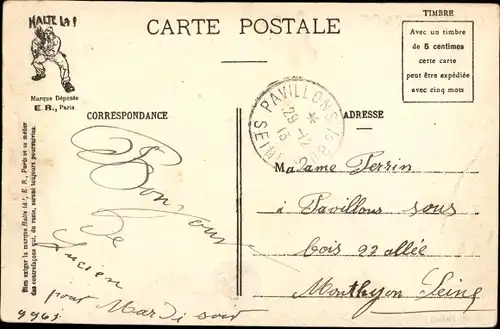 HALTE LA !
Marque Déposée
E. R., Paris
CARTE POSTALE
TIMBRE
Avec un timbre
de 5 centimes
cette carte
peut être expédiée
avec cinq mots
CORRESPONDANCE
ADRESSE
PAVILLONS
29
13
SEINE
Bonjour
De
Lucien
pour Mardi soir
9963
Madame Perrin
à Pavillons sous
bois 22 allée
Monthyon Seine
Bien exiger la marque Halte là !, E. R., Paris et se méfier
des contrefaçons qui, du reste, seront toujours poursuivies.